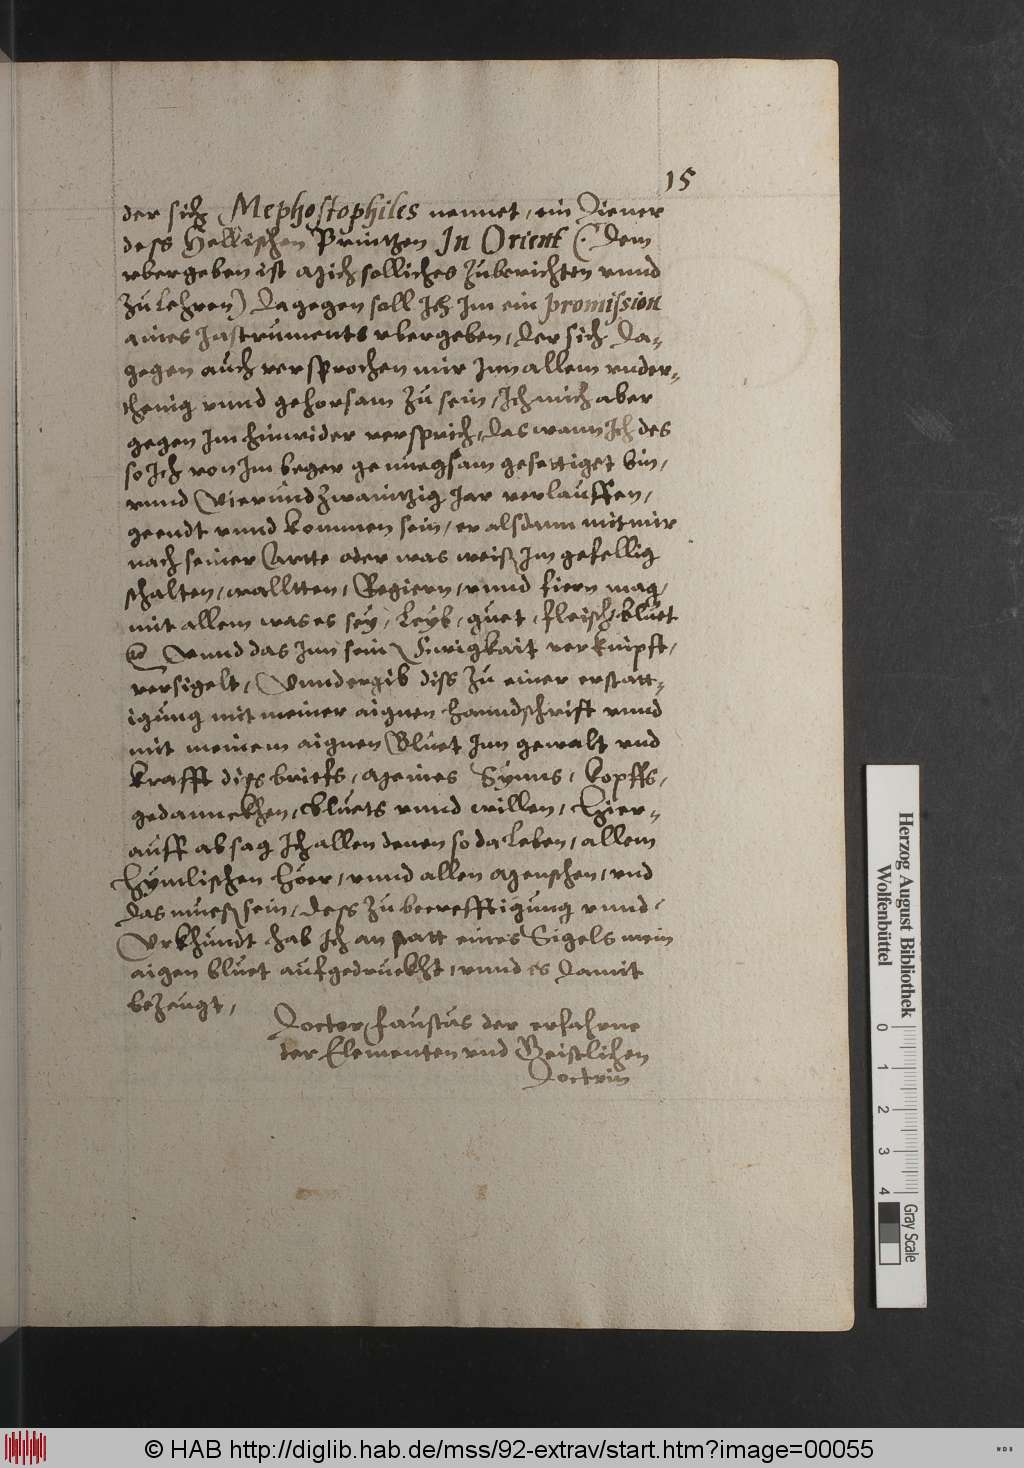 15
der sich Mephostophiles nennet, ein Diener
dess Hellischen Printzen In Orient (: Dem
vbergeben ist Mich solliches zuberichten vnnd
zu Lehren) Dagegen soll Ich Im ein promission
aines Instruments vbergeben, Der sich Da-
gegen auch versprochen mir Inn allem vnder-
thenig vnnd gehorsam zu sein, Ich mich aber
gegen Im hinwider versprich, das wann Ich des
so Ich von Im beger genuegsam gesettiget bin,
vnnd Vierundzwaintzig Jar verlauffen,
geendt vnnd kommen sein, er alsdann mit mir
nach seiner Artte oder was weiß Im gefellig
schalten, walltten, Regiern, vnnd fiern mag,
mit allem was es sey, Leyb, guet, fleisch, bluet
Vnnd das Inn sein Ewigkait verknipft,
versigelt, Vnnd ergib diss zu einer erstatt-
igung mit meiner aignen hanndschrift vnnd
mit meinem aignen Bluet Inn gewalt vnd
krafft diss briefs, Meines Synns, kopffs,
gedannckhen, bluets vnnd willen, Hier-
auff absag Ich allen denen so da Leben, allem
Hymlischen Hoer, vnnd allen Menschen, vnd
das mueß sein, Dess zu beerefftigung vnnd
Vrkhundt hab Ich an statt eines Sigels mein
aigen bluet aufgedruckht, vnnd es Damit
bezeugt,
Doctor Faustus der erfahrne
der Elementen vnd Geistlichen
Doctrin
Herzog August Bibliothek
Wolfenbüttel
0 1 2 3 4
Gray Scale
© HAB http://diglib.hab.de/mss/92-extrav/start.htm?image=00055